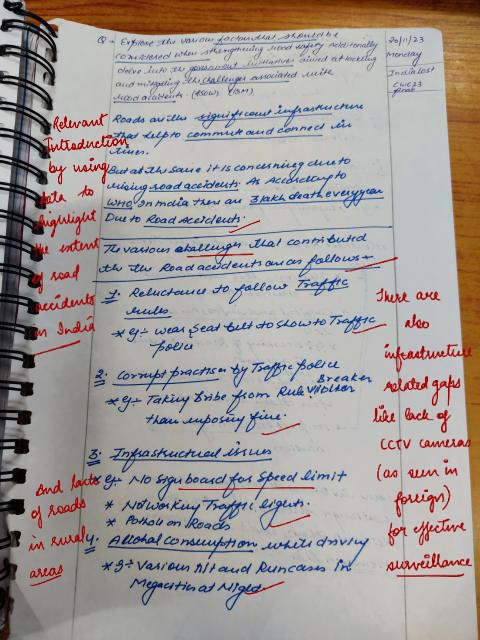 Q → Explore the various factors that should be
considered when strengthening road safety. Additionally
delve into the government initiatives aimed at tackling
and mitigating the challenges associated with
road accidents. (250W) (15M)
20/11/23
Monday
India lost
CWC23
final
Roads are the significant infrastructure
that help to commute and connect in
times.
But at the same it is concerning due to
rising road accidents. As According to
WHO, In India there are 3 lakh death every year
Due to Road Accidents.
Relevant
Introduction
by using
data to
highlight
the extent
of road
accidents
in India
The various challenges that contributed
the the Road accidents are as follows →
1. Reluctance to follow Traffic
rules
* eg:- wear seat belt to show to Traffic
police
2. Corrupt practises by Traffic police
* eg:- Taking bribe from Rule Breaker
than imposing fine.
3. Infrastructural issues
* eg:- No sign board for speed limit
* Not working Traffic lights.
* Pothole on Roads
4. Alcohol consumption while driving
* eg:- Various hit and Run cases in
Megacities at Night.
There are
also
infrastructure
related gaps
like lack of
CCTV cameras
(as seen in
foreign)
for effective
surveillance
And lacks
of roads
in rural
areas